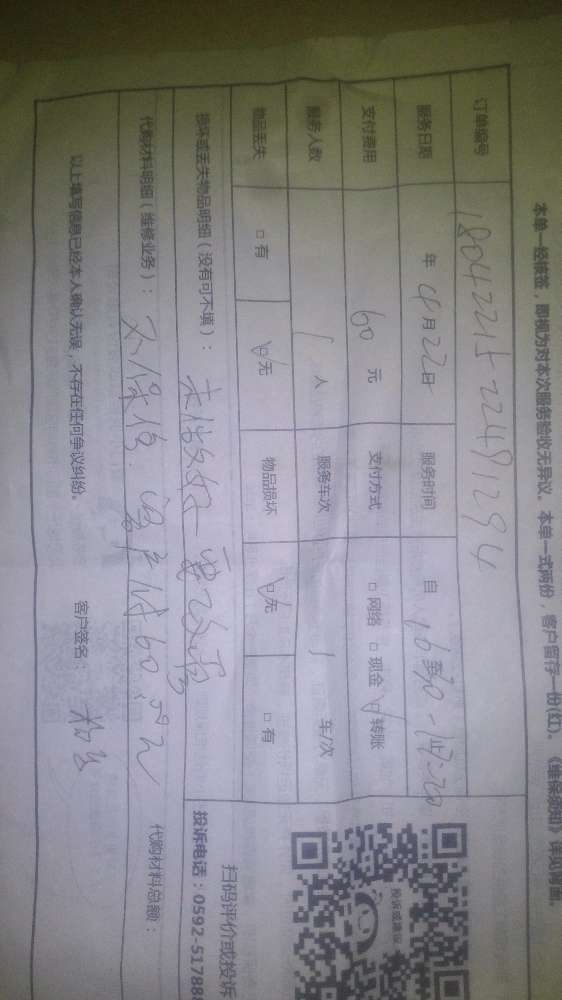 本单一经核签，即视为对本次服务验收无异议，本单一式两份，客户留存一份(红)。《维保须知》详见背面。
订单编号 1804221522491294
服务日期 年 4月22日 服务时间 自
支付费用 60 元 支付方式 □网络 □现金 ☑转账
服务人数 1 人 服务车次 1 车/次
物品丢失 □有 ☑无 物品损坏 ☑无 □有
损坏或丢失物品明细（没有可不填）：
代购材料明细（维修业务）： 不保修 60.
代购材料总额：
以上填写信息已经本人确认无误，不存在任何争议纠纷。 客户签名：
投诉或建议
扫码评价或投诉
投诉电话：0592 51788